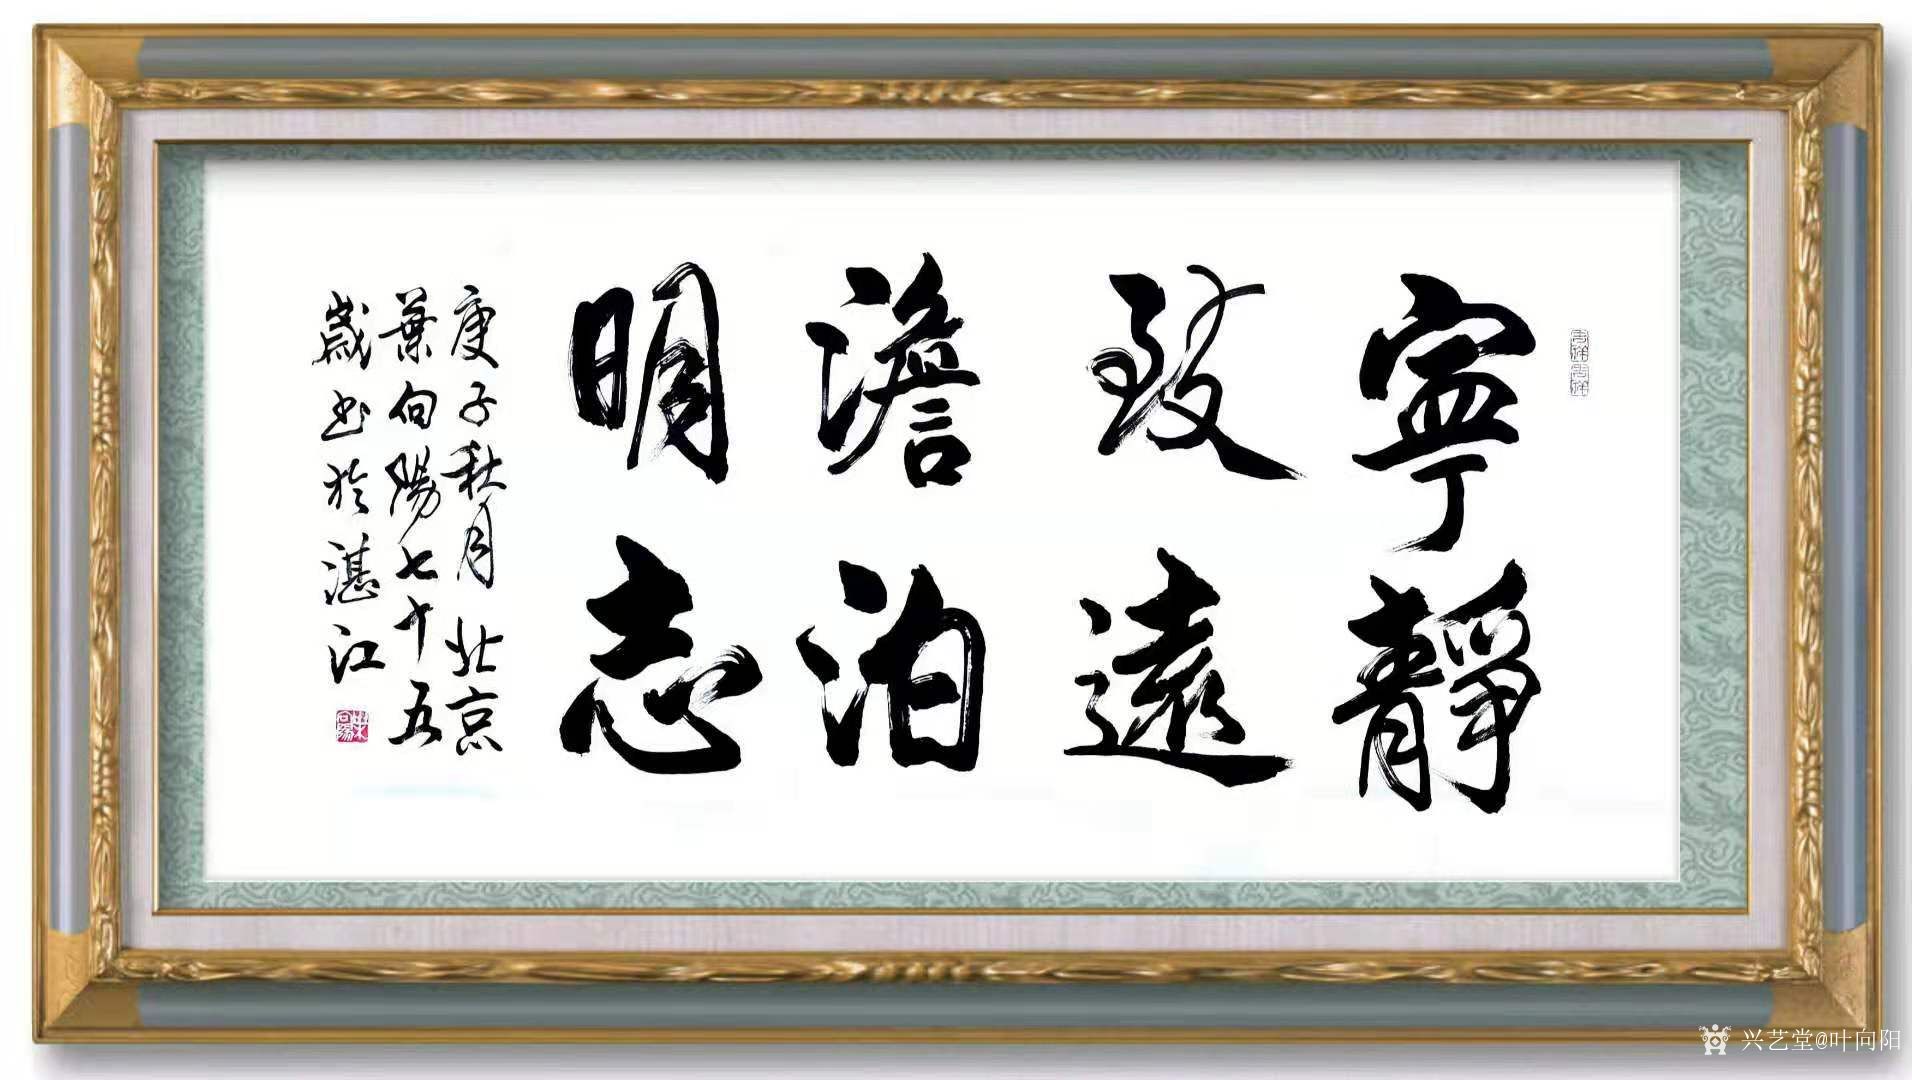 寧靜
致遠
澹泊
明志
庚子秋月北京
葉向陽七十五
歲书於湛江
兴艺堂@叶向阳